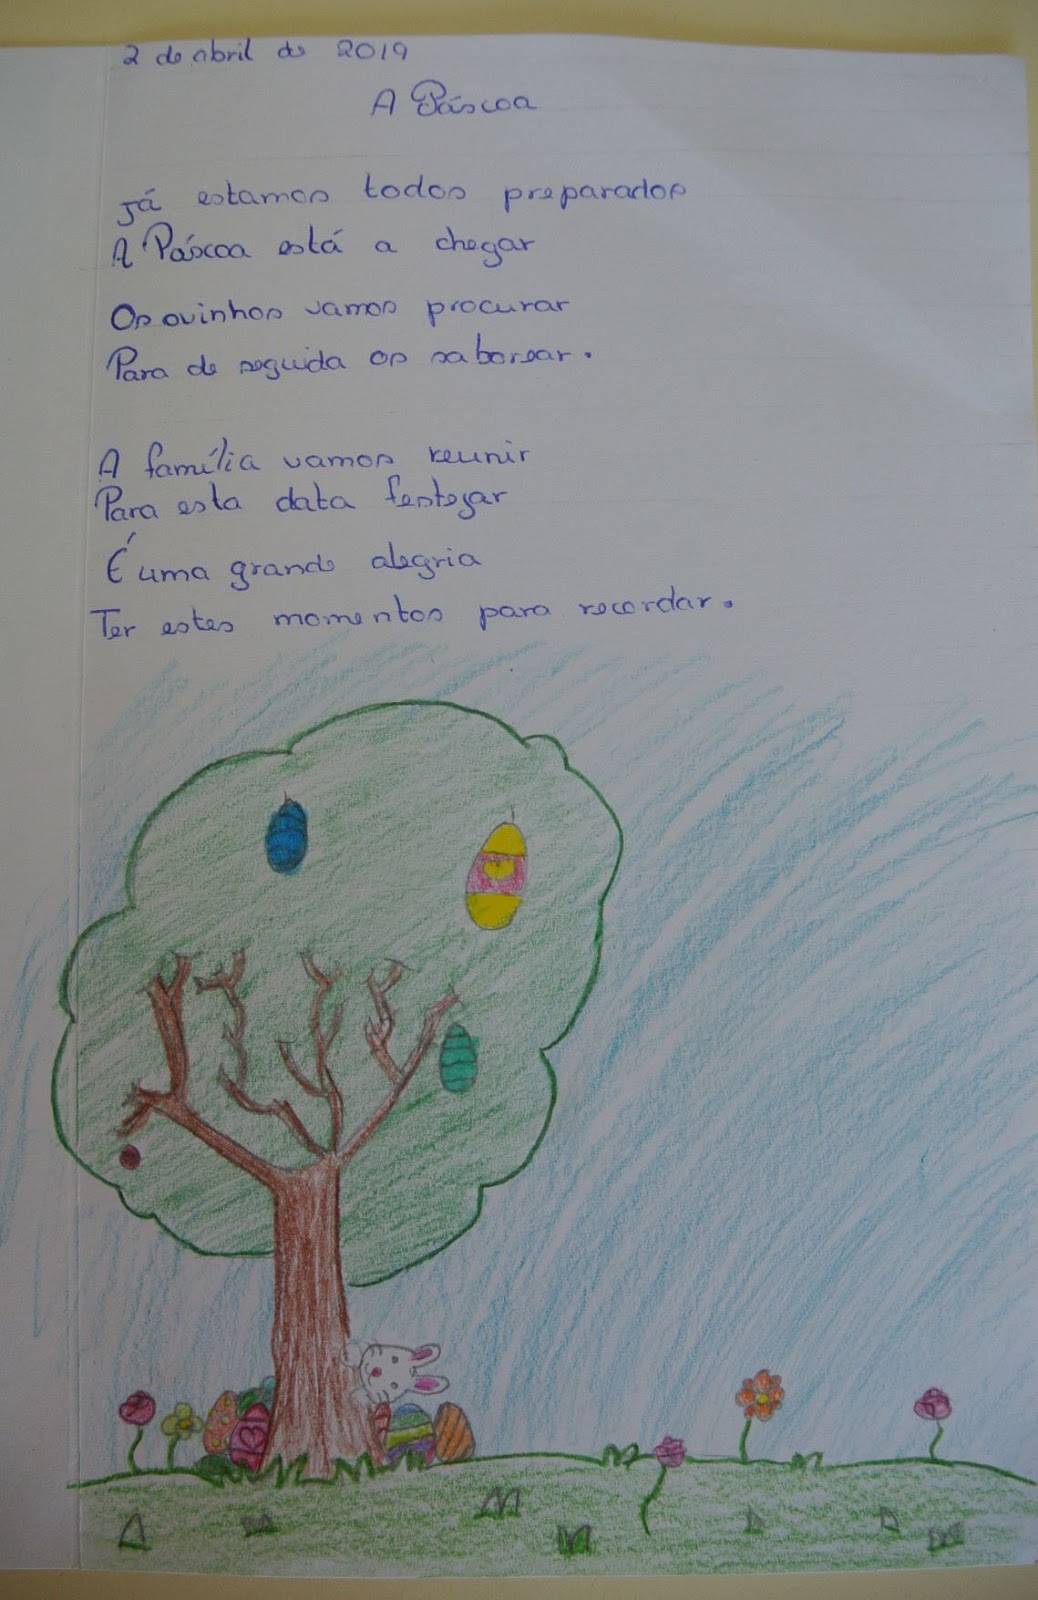 2 de abril de 2019
A Páscoa
Já estamos todos preparados
A Páscoa está a chegar
Os ovinhos vamos procurar
Para de seguida os saborear.
A família vamos reunir
Para esta data festejar
É uma grande alegria
Ter estes momentos para recordar.